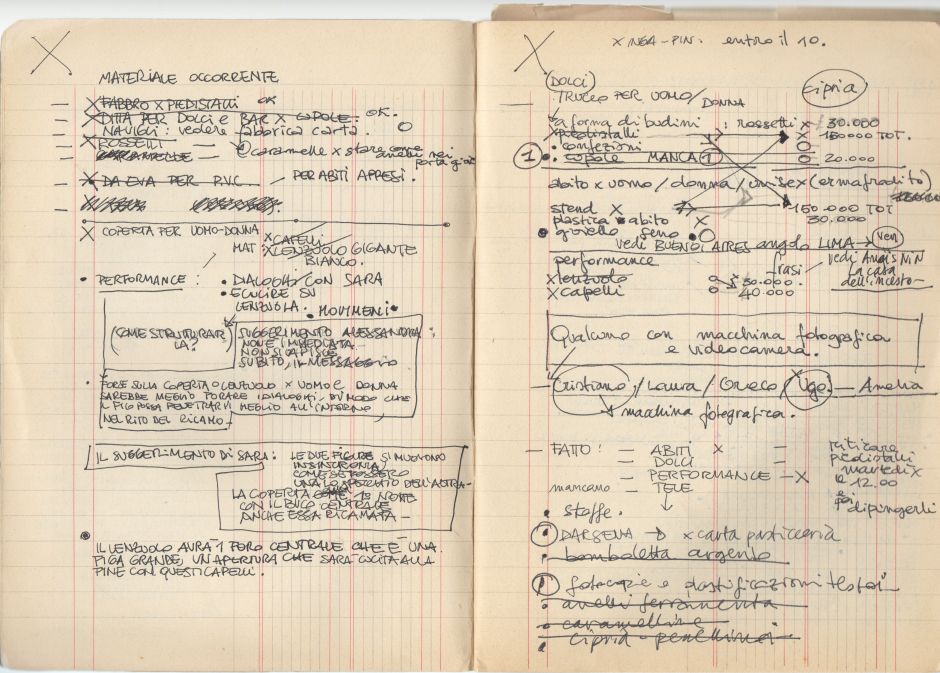 MATERIALE OCCORRENTE
X FABBRO X PIEDISTALLI OK
X DITTA PER DOLCI E BAR X CUPOLE OK.
NAVIGLI: vedere fabbrica carta.
X ROSSETTI
CARAMELLE caramelle x stare come
anelli nei
X DA EVA PER P.V.C. — PER ABITI APPESI.
X COPERTA PER UOMO-DONNA
MAT: X CAPELLI
X LENZUOLO GIGANTE
BIANCO.
• PERFORMANCE: • DIALOGHI CON SARA
• CUCIRE SU
LENZUOLA. • MOVIMENTI •
(COME STRUTTURARLA?)
SUGGERIMENTO ALESSANDRA:
NON È IMMEDIATA
NON SI CAPISCE
SUBITO, IL MESSAGGIO
• FORSE SULLA COPERTA O LENZUOLO X UOMO E DONNA
SAREBBE MEGLIO FORARE I DIALOGHI, DI MODO CHE
IL FIGO POSSA PENETRARVI MEGLIO ALL'INTERNO
NEL RITO DEL RICAMO—
IL SUGGERIMENTO DI SARA: LE DUE FIGURE SI MUOVONO
IN SINCRONIA,
COME SE FOSSERO
UNA LO SPECCHIO DELL'ALTRA—
LA COPERTA
CON IL BUCO CENTRALE
ANCHE ESSA RICAMATA—
• IL LENZUOLO AVRÀ 1 FORO CENTRALE CHE È UNA
FIGA GRANDE, UN'APERTURA CHE SARÀ CUCITA ALLA
FINE CON QUESTI CAPELLI.
X INGA-PIN. entro il 10.
(DOLCI) cipria
TRUCCO PER UOMO/DONNA
a forma di budini : rossetti X 30.000
X piedistalli X 150000 TOT.
• confezioni O
1 • cupole MANCA 1 O 20.000
abito x uomo/donna/unisex (ermafrodito)
stend X 150.000 TOT
plastica x abito X 30.000
• gioiello seno • O
vedi BUENOS AIRES angolo LIMA → Ven
performance rasi vedi Anaïs Nin
X lenzuolo 30.000 La casa
X capelli O 40.000 dell'incesto—
Qualcuno con macchina fotografica
e videocamera.
— Cristiano / Laura / Greco / Ugo. — Amelia
→ macchina fotografica.
— FATTO: — ABITI X — ritirare
— DOLCI — piedistalli
— PERFORMANCE — X martedì x
mancano — TELE le 12.00
e poi
dipingerli
• stoffe.
• DARSENA → x carta pasticceria
• bomboletta argento
• fotocopie e plastificazioni testi—
• anelli ferramenta
• caramelline
• cipria - pennellina